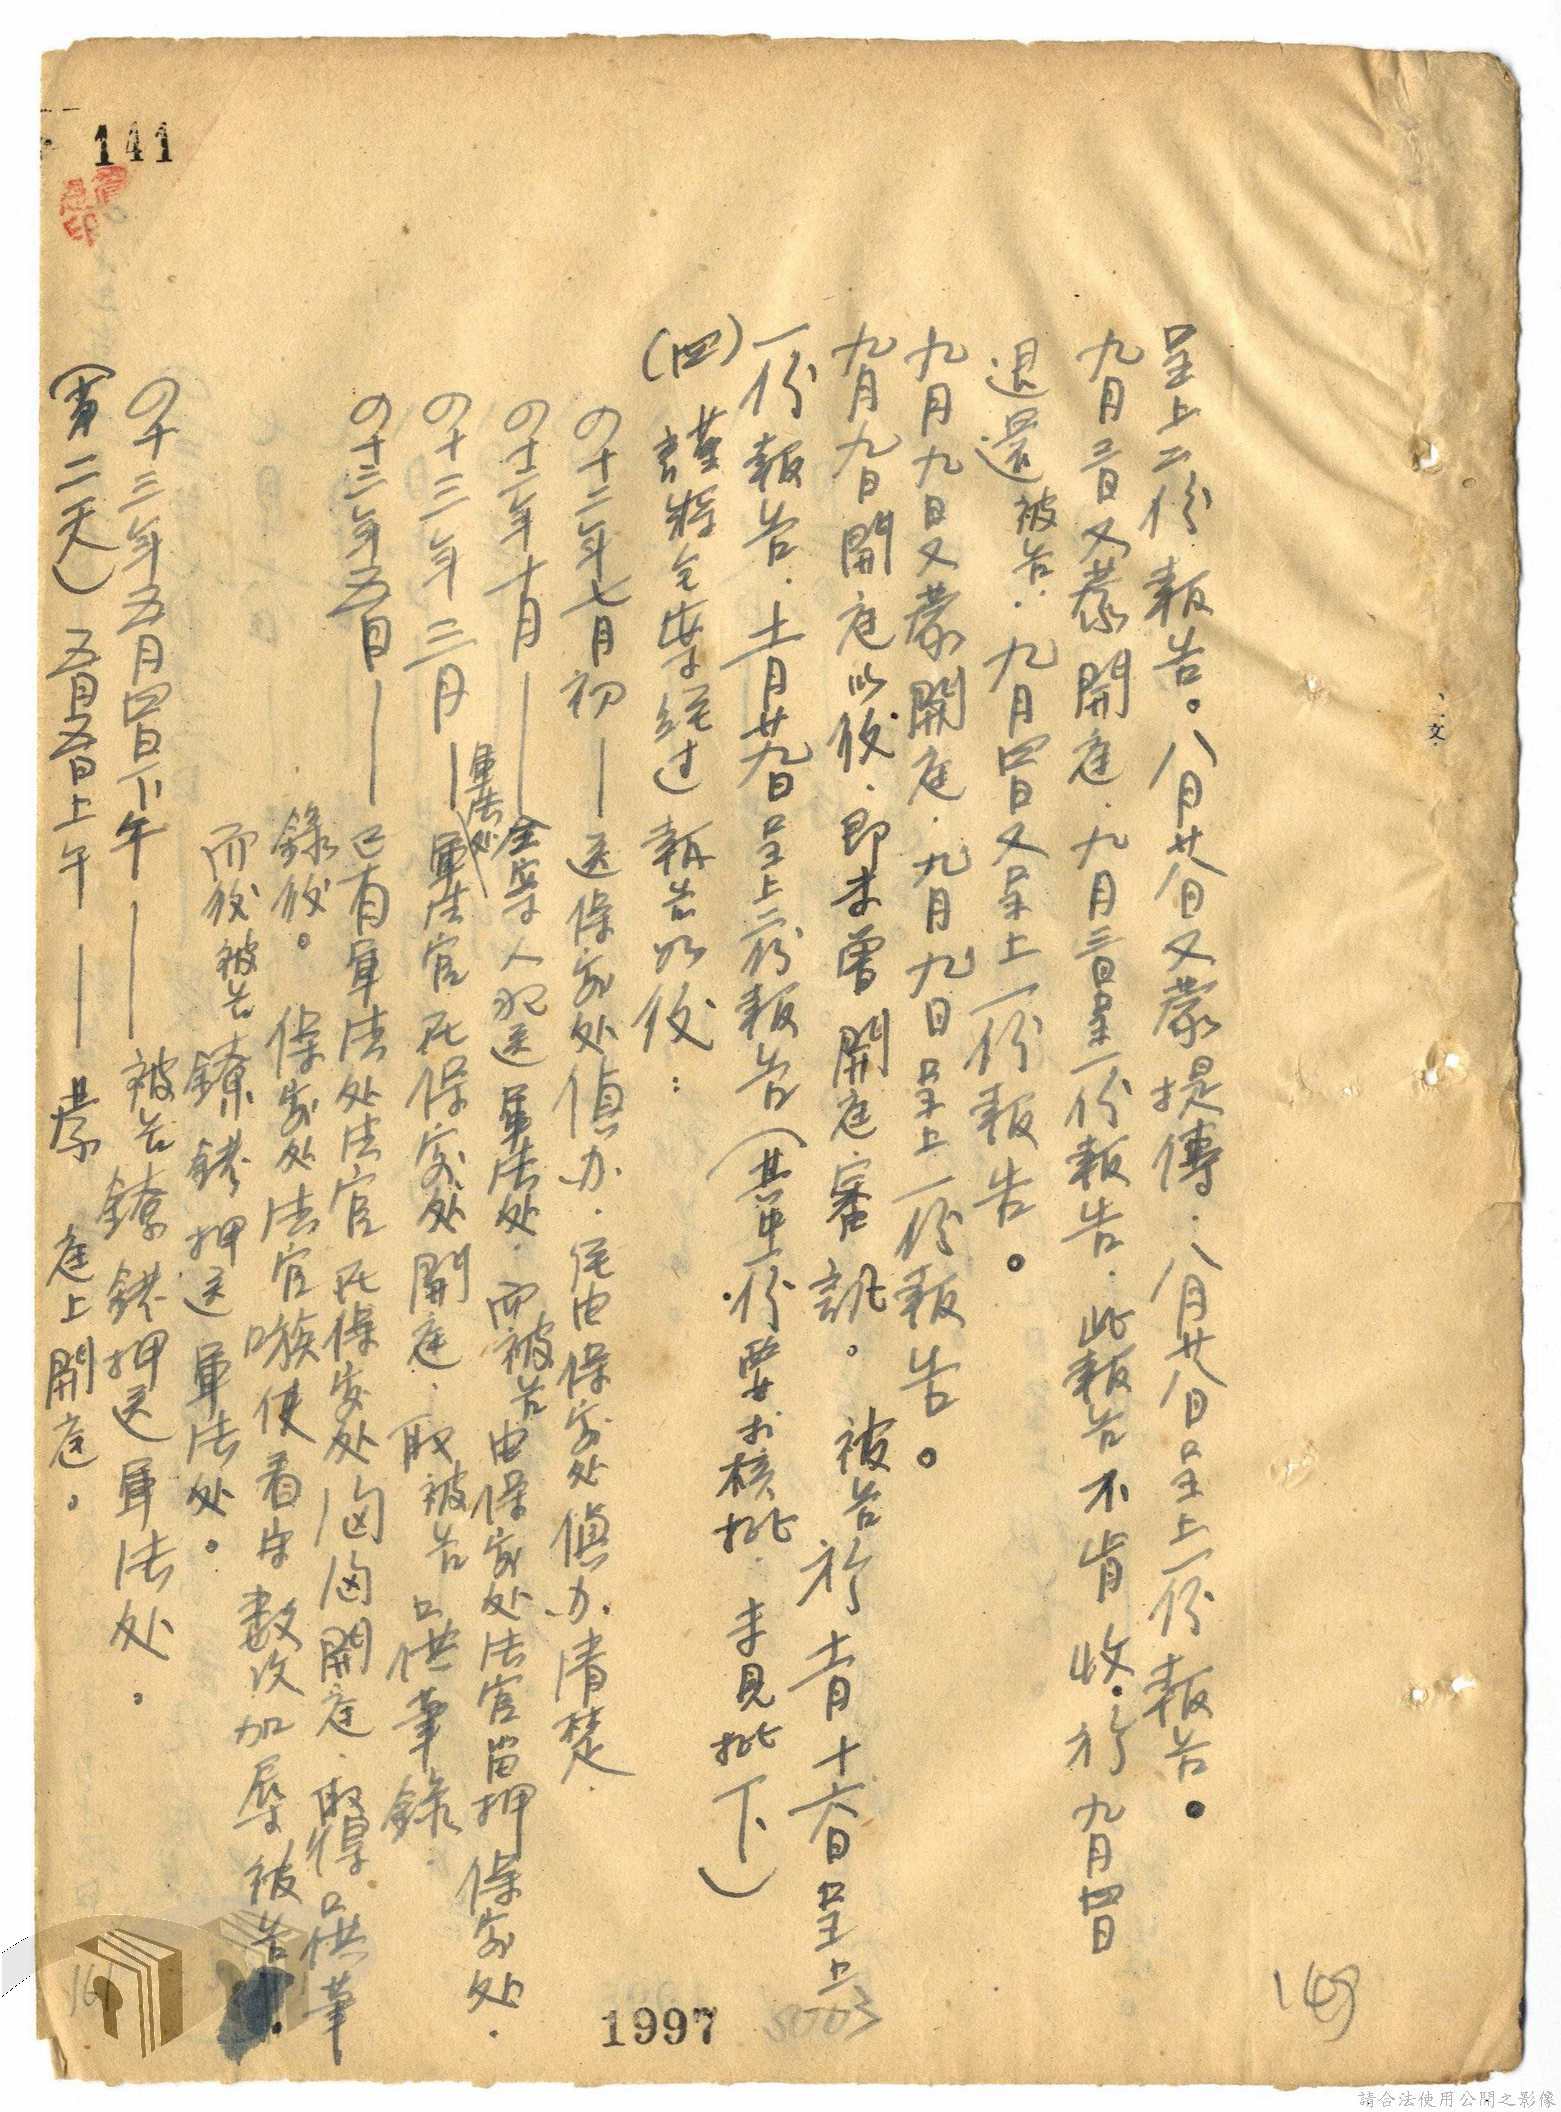 呈上二份報告。八月廿八日又蒙提傳.八月廿八日呈上一份報告。
九月三日又蒙開庭.九月三日呈一份報告.此報告不肯收.於九月四日
退還被告.九月四日又呈上一份報告。
九月九日又蒙開庭.九月九日呈上一份報告。
九月九日開庭以後.即未曾開庭審訊。被告於十一月十六日呈上
一份報告.十一月廿九日呈上二份報告(其中一份要求核批.未見批下)
(四)謹將全案經过報告如後:
四十二年七月初——送保安处偵办.經由保安处偵办清楚.
四十二年十月——全案人犯送軍法处.而被告由保安处法官留押保安处.
四十三年三月——軍法处軍法官在保安处開庭.取被告口供筆錄.
四十三年五月——已有軍法处法官在保安处開庭.取得口供筆
錄後。保安处法官嗾使看守數次加辱被告.
而後被告鐐銬押送軍法处。
四十三年五月四日下午——被告鐐銬押送軍法处.
(第二天)五月五日上午——蒙庭上開庭。
141
1997
5003
149
161
文
請合法使用公開之影像